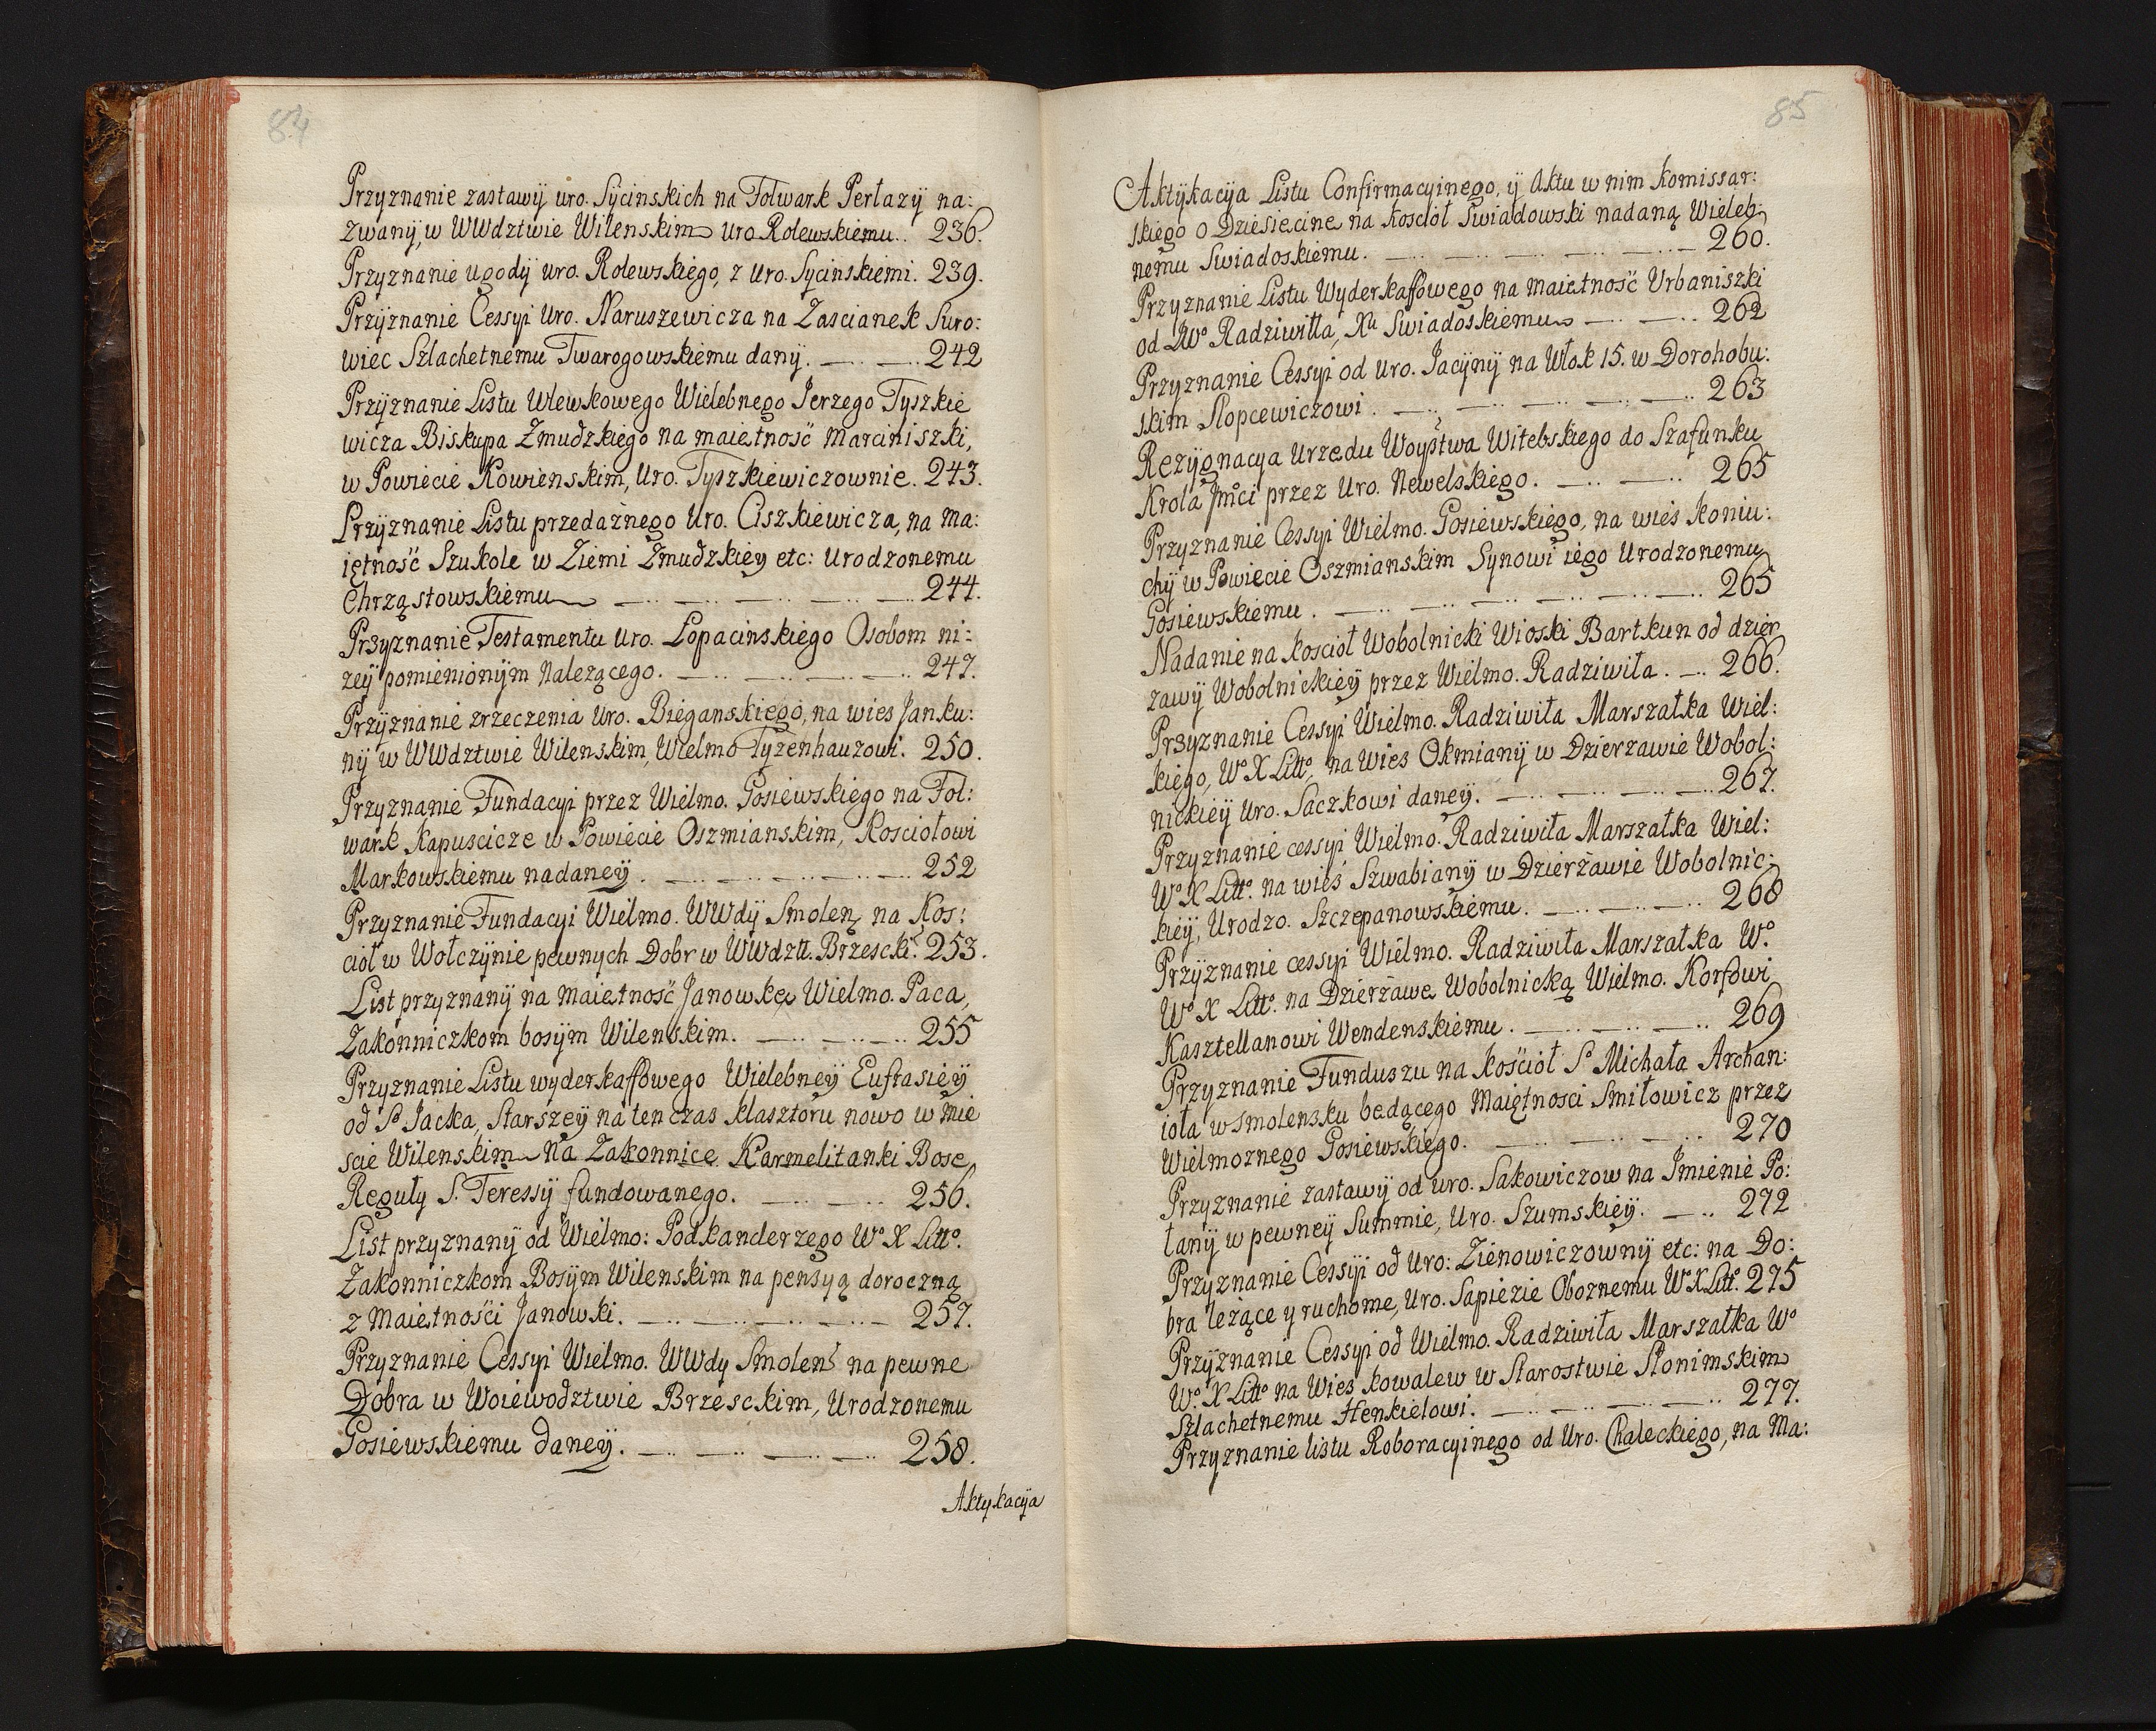 84
Przyznanie zastawÿ uro. Sÿcinskich na Folwark Pertazÿ na:
zwanÿ, w WWdztwie Wilenskim Uro Rolewskiemu.. 236.
Przyznanie ugodÿ uro. Rolewskiego, z Uro. Sycinskiemi. 239.
Przÿznanie Cessyi Uro. Naruszewicza na Zascianek Suro:
wiec Szlachetnemu Twarogowskiemu danÿ. 242
Przÿznanie Listu Wlewkowego Wielebnego Jerzego Tyszkie
wicza Biskupa Zmudzkiego na maiętnosć Marciniszki,
w Powiecie Kowienskim, Uro. Tyszkiewiczownie. 243.
Przÿznanie Listu przedażnego Uro. Ciszkiewicza, na Ma:
iętnosć Szukole w Ziemi Zmudzkiey etc: Urodzonemu
Chrząstowskiemu 244.
Przyznanie Testamentu Uro. Łopacinskiego Osobom ni:
zeÿ pomienionÿm Nalezącego. 247.
Przÿznanie zrzeczenia Uro. Bieganskiego, na wies Janku:
nÿ w WWdztwie Wilenskim, Wielmo Tyzenhauzowi. 250.
Przyznanie Fundacyi przez Wielmo. Gosiewskiego na Fol:
wark Kapuscicze w Powiecie Oszmianskim, Kosciołowi
Markowskiemu nadaneÿ. 252
Przyznanie Fundacyi Wielmo. WWdÿ Smolen na Kos:
cioł w Wołczÿnie pewnych Dobr w WWdztt. Brzescki. 253.
List przyznanÿ na maiętnosć Janowkę Wielmo. Paca,
Zakonniczkom bosÿm Wilenskim. 255
Przyznanie Listu wyderkaffowego Wielebneÿ Eufrasieÿ
od S° Jacka, Starszeÿ na ten czas klasztoru nowo w Mie
scie Wilenskim Na Zakonnice Karmelitanki Bose
Reguły S. Teressÿ fundowanego. 256.
List przyznanÿ od Wielmo: Podkanderzego W° X Litt°.
Zakonniczkom Bosÿm Wilenskim na pensyą doroczną
z Maiętnosći Janowki. 257.
Przyznanie Cessyi Wielmo. WWdy Smolens na pewne
Dobra w Woiewodztwie Brzesckim, Urodzonemu
Gosiewskiemu daneÿ. 258.
Aktykacÿa
85
Aktÿkacÿa Listu Confirmacyinego, ÿ Aktu w nim Komissar:
skiego o Dziesięcinę na Koscioł Swiadowski nadaną Wieleb:
nemu Swiadoskiemu. 260.
Przyznanie Listu Wyderkaffowego na maiętnosć Urbaniszki
od JW° Radziwiłła, Xu Swiadoskiemu 262
Przyznanie Cessyi od Uro. Jacÿnÿ na Włok 15. w Dorohobu:
skim Słopcewiczowi. 263
Rezÿgnacya Urzędu Woystwa Witebskiego do Szafunku
Krola Jmci przez Uro. Newelskiego. 265
Przyznanie Cessyi Wielmo. Gosiewskiego, na wies Koniu:
chÿ w Powiecie Oszmianskim Synowi iego Urodzonemu
Gosiewskiemu. 265
Nadanie na Koscioł Wobolnicki Wioski Bartkun od dzier
zawÿ Wobolnickieÿ przez Wielmo. Radziwiła. 266.
Przyznanie Cessyi Wielmo. Radziwiła Marszałka Wiel:
kiego, W° X Litt°, na Wies Okmianÿ w Dzierzawie Wobol:
nickieÿ Uro. Saczkowi daneÿ. 267.
Przyznanie cessyi Wielmo. Radziwiła Marszałka Wiel:
W° X Litt°. na wies Szwabianÿ w Dzierżawie Wobolnic:
kieÿ, Urodzo. Szczepanowskiemu. 268
Przÿznanie cessyi Wielmo. Radziwiła Marszałka W°.
W° X Litt°. na Dzierżawę Wobolnicką Wielmo. Korfowi
Kasztellanowi Wendenskiemu. 269
Przyznanie Funduszu na Kośćioł S° Michała Archan:
ioła w Smolensku będącego Maiętnosci Smiłowicz przez
Wielmoznego Gosiewskiego. 270
Przyznanie zastawÿ od uro. Sakowiczow na Jmienie Po:
łanÿ w pewneÿ Summie, Uro. Szumskieÿ. 272
Przyznanie Cessÿi od Uro: Zienowiczownÿ etc: na Do:
bra leżące y ruchome, Uro. Sapiezie Oboznemu W° X Litt°. 275
Przÿznanie Cessyi od Wielmo. Radziwiła Marszałka W°
W°. X Litt° na Wies Kowalew w Starostwie Słonimskim
Szlachetnemu Henkielowi. 277.
Przyznanie listu Roboracyinego od Uro. Chaleckiego, na Ma: